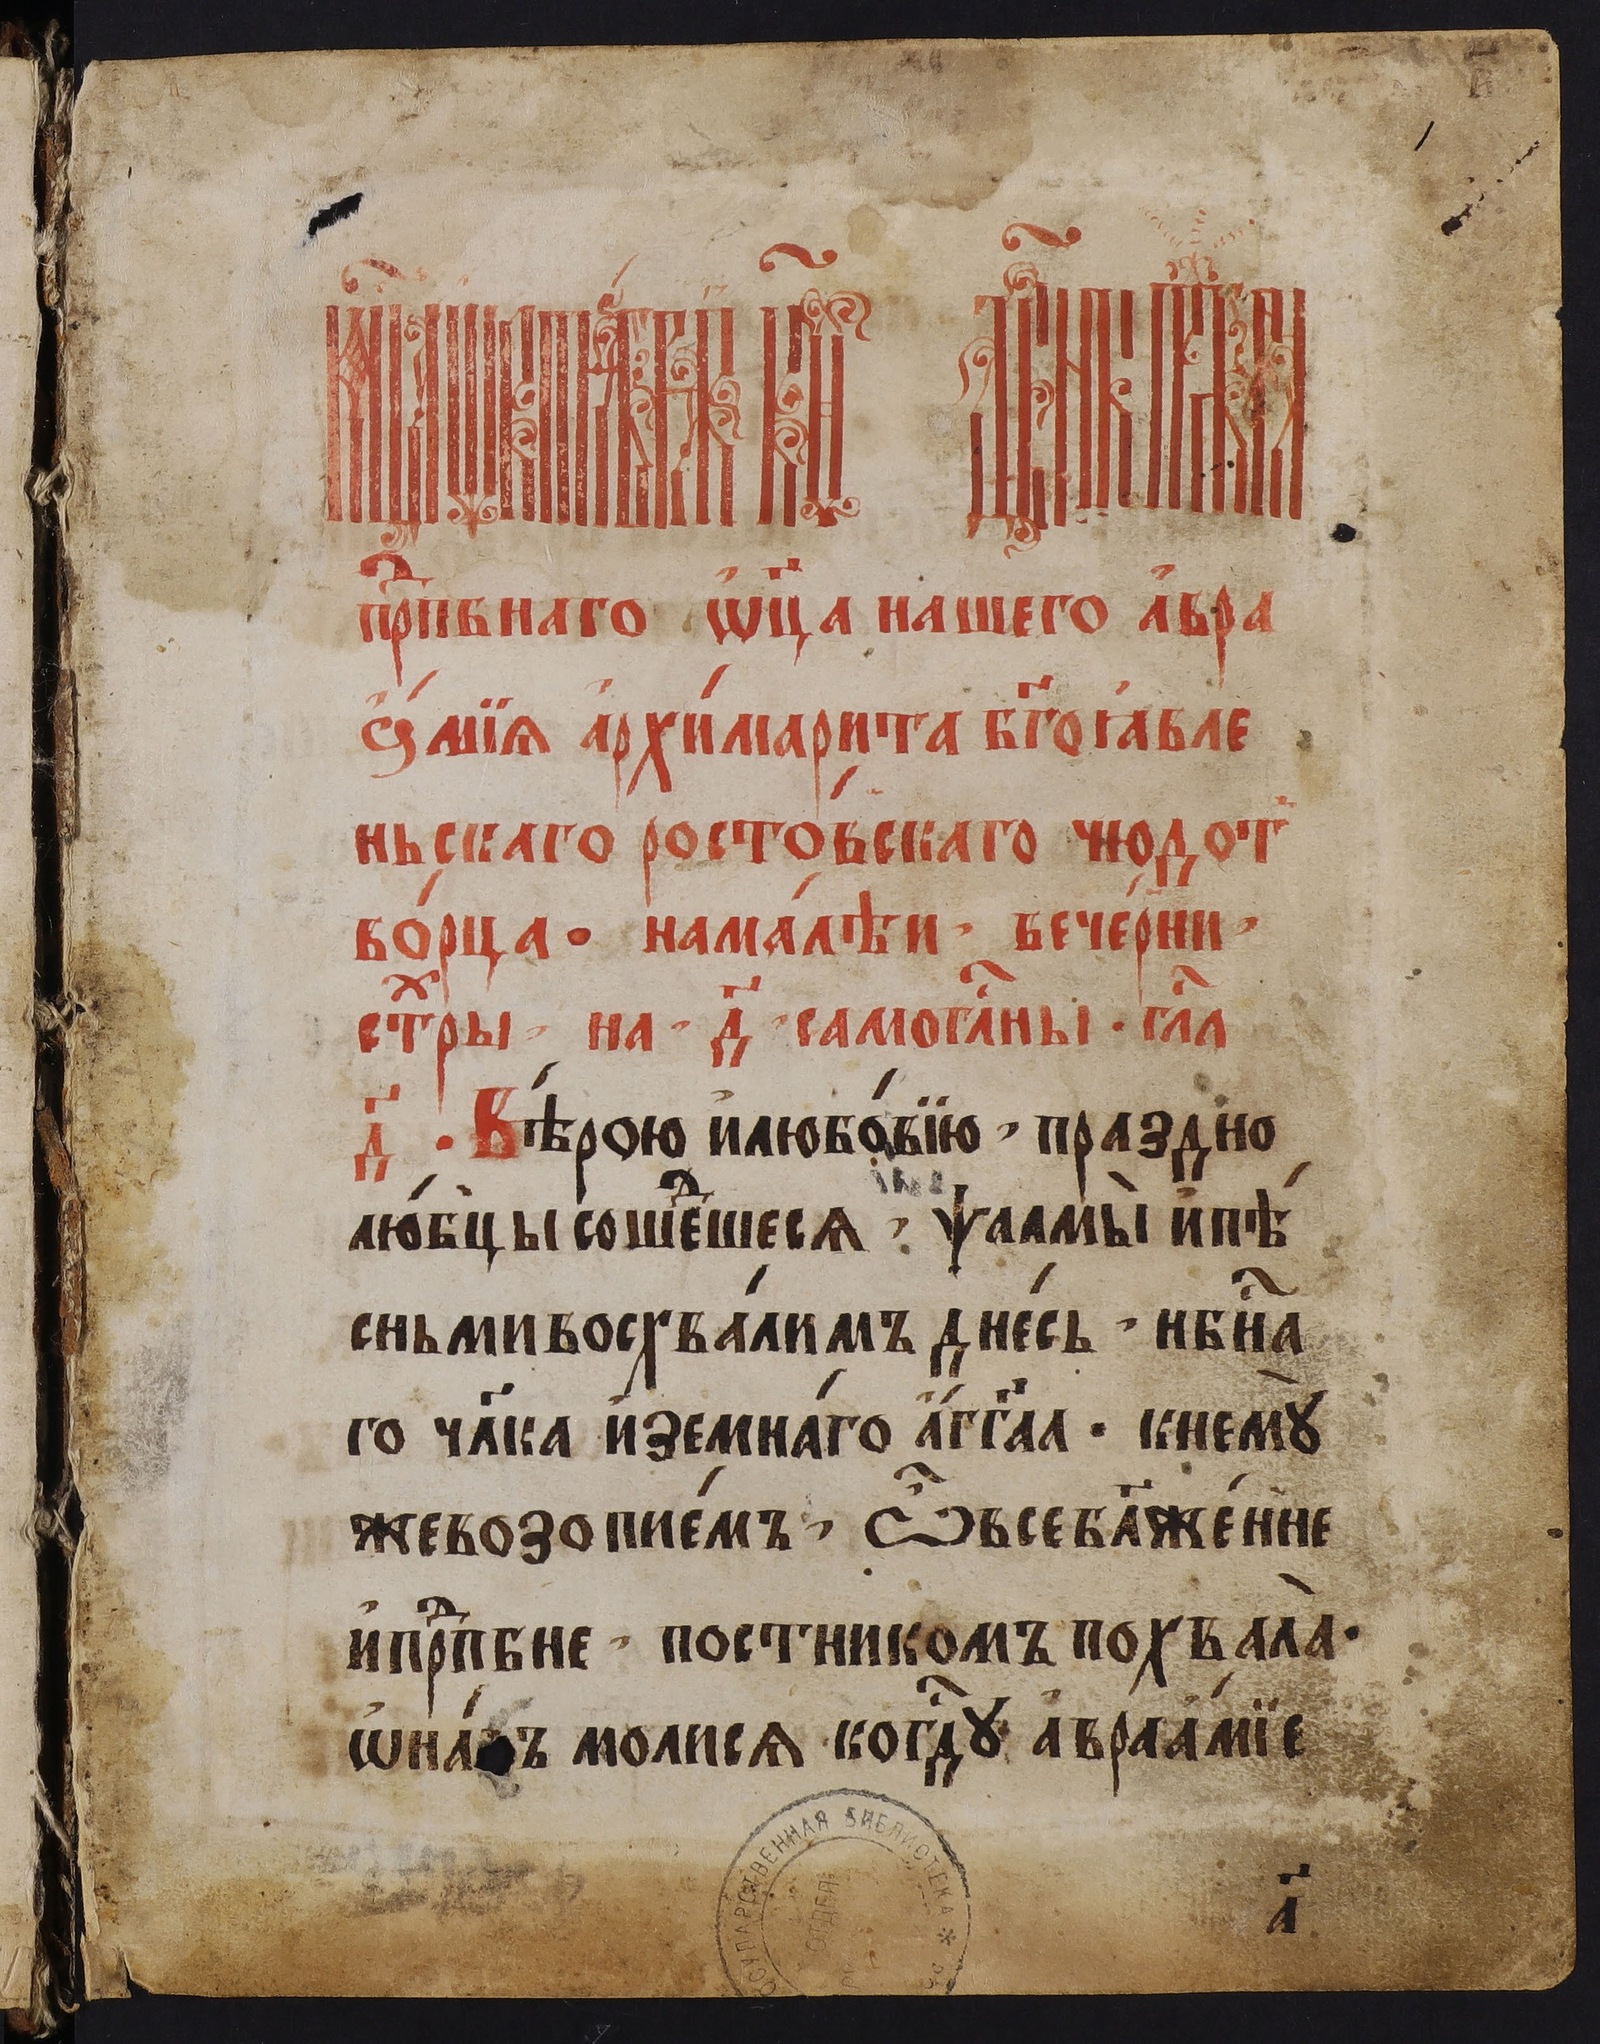 прпⷣбнаго ѡ҆ц҃а нашего а҆вра
а҆́мїѧ а҆рхи́марита бг҃оꙗ҆вле
ньскаго росто́вскаго чюдот
во́рца · нама́лѣи · вече́рни ·
стⷯры · на · д҃ · самогл҃ны · гла
д҃ · Вѣ́рою и҆любо́вїю · праздно
лю́бцы сошеⷣшесѧ · ѱалмы̀ и҆пѣ́
сньмивосхва́лимъ дне́сь · нбн҃а
го чл҃ка и҆земна́го а҆́гг҃ла · кнемꙋ̀
жевозопие́мъ · Ѽвсебл҃же́нне
и҆прпⷣбне · постникомъ похвала̀ ·
ѡ҆на́съ молисѧ когдⷭ҇ꙋ а҆враа́мїе
а҃
ГОСУДАРСТВЕННАЯ БИБЛИОТЕКА *
ОТДЕЛ